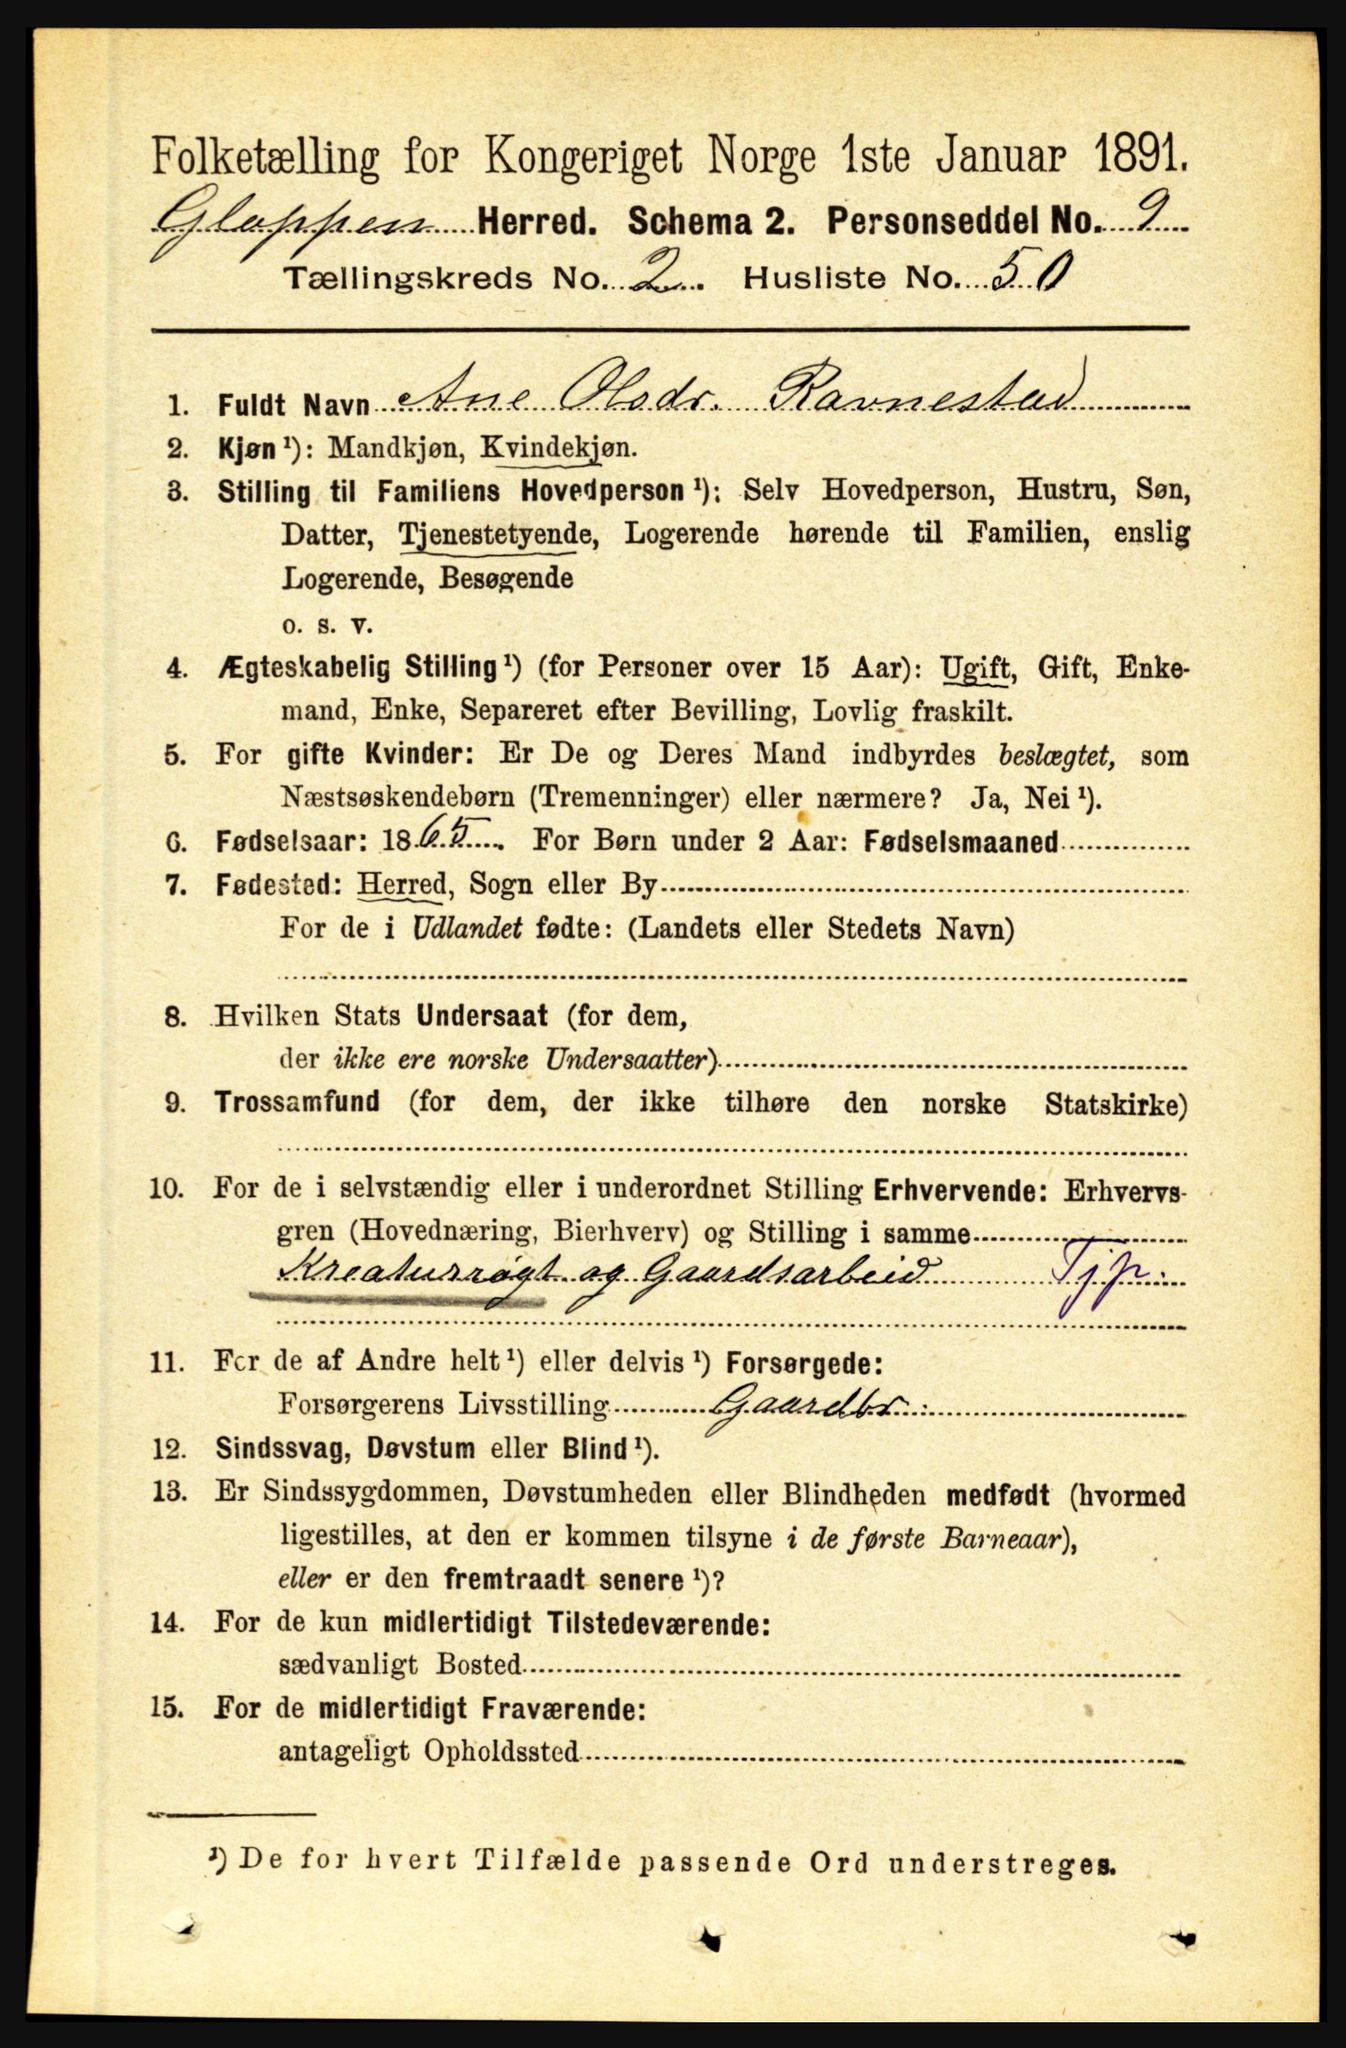 Folketælling for Kongeriget Norge 1ste Januar 1891.
Gloppen Herred. Schema 2. Personseddel No. 9
Tællingskreds No. 2. Husliste No. 50
1. Fuldt Navn Ane Olsdr. Ravnestad
2. Kjøn ¹): Mandkjøn, Kvindekjøn.
3. Stilling til Familiens Hovedperson ¹): Selv Hovedperson, Hustru, Søn,
Datter, Tjenestetyende, Logerende hørende til Familien, enslig
Logerende, Besøgende
o. s. v.
4. Ægteskabelig Stilling ¹) (for Personer over 15 Aar): Ugift, Gift, Enke-
mand, Enke, Separeret efter Bevilling, Lovlig fraskilt.
5. For gifte Kvinder: Er De og Deres Mand indbyrdes beslægtet, som
Næstsøskendebørn (Tremenninger) eller nærmere? Ja, Nei ¹).
6. Fødselsaar: 1865. For Børn under 2 Aar: Fødselsmaaned
7. Fødested: Herred, Sogn eller By
For de i Udlandet fødte: (Landets eller Stedets Navn)
8. Hvilken Stats Undersaat (for dem,
der ikke ere norske Undersaatter)
9. Trossamfund (for dem, der ikke tilhøre den norske Statskirke)
10. For de i selvstændig eller i underordnet Stilling Erhvervende: Erhvervs-
gren (Hovednæring, Bierhverv) og Stilling i samme
Kreaturrøgt og Gaardsarbeid Tjp.
11. For de af Andre helt ¹) eller delvis ¹) Forsørgede:
Forsørgerens Livsstilling Gaardbr.
12. Sindssvag, Døvstum eller Blind ¹).
13. Er Sindssygdommen, Døvstumheden eller Blindheden medfødt (hvormed
ligestilles, at den er kommen tilsyne i de første Barneaar),
eller er den fremtraadt senere ¹)?
14. For de kun midlertidigt Tilstedeværende:
sædvanligt Bosted
15. For de midlertidigt Fraværende:
antageligt Opholdssted
¹) De for hvert Tilfælde passende Ord understreges.